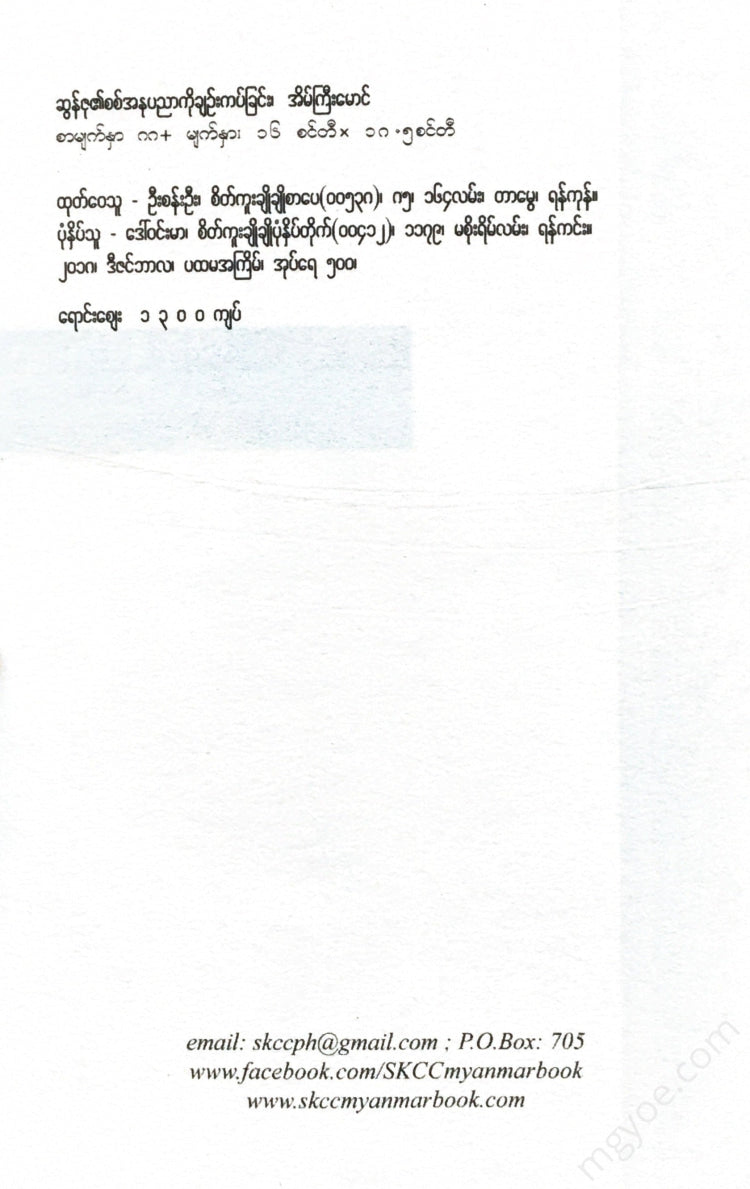 ဆွန်ဇူ၏စစ်အနုပညာကိုချဉ်းကပ်ခြင်း၊ အိမ်ကြီးမောင်
စာမျက်နှာ ၈၈+ မျက်နှာ၊ ၁၆ စင်တီ× ၁၈.၅စင်တီ
ထုတ်ဝေသူ - ဦးစန်းဦး၊ စိတ်ကူးချိုချိုစာပေ(၀၀၅၃၈)၊ ၈၅၊ ၁၆၄လမ်း၊ တာမွေ၊ ရန်ကုန်။
ပုံနှိပ်သူ - ဒေါ်ဝင်းမာ၊ စိတ်ကူးချိုချိုပုံနှိပ်တိုက်(၀၀၄၁၂)၊ ၁၁၇၉၊ မစိုးရိမ်လမ်း၊ ရန်ကင်း။
၂၀၁၈၊ ဒီဇင်ဘာလ၊ ပထမအကြိမ်၊ အုပ်ရေ ၅၀၀၊
ရောင်းဈေး ၁ ၃ ၀ ၀ ကျပ်
email: skccph@gmail.com ; P.O.Box: 705
www.facebook.com/SKCCmyanmarbook
www.skccmyanmarbook.com
mgyoe.com